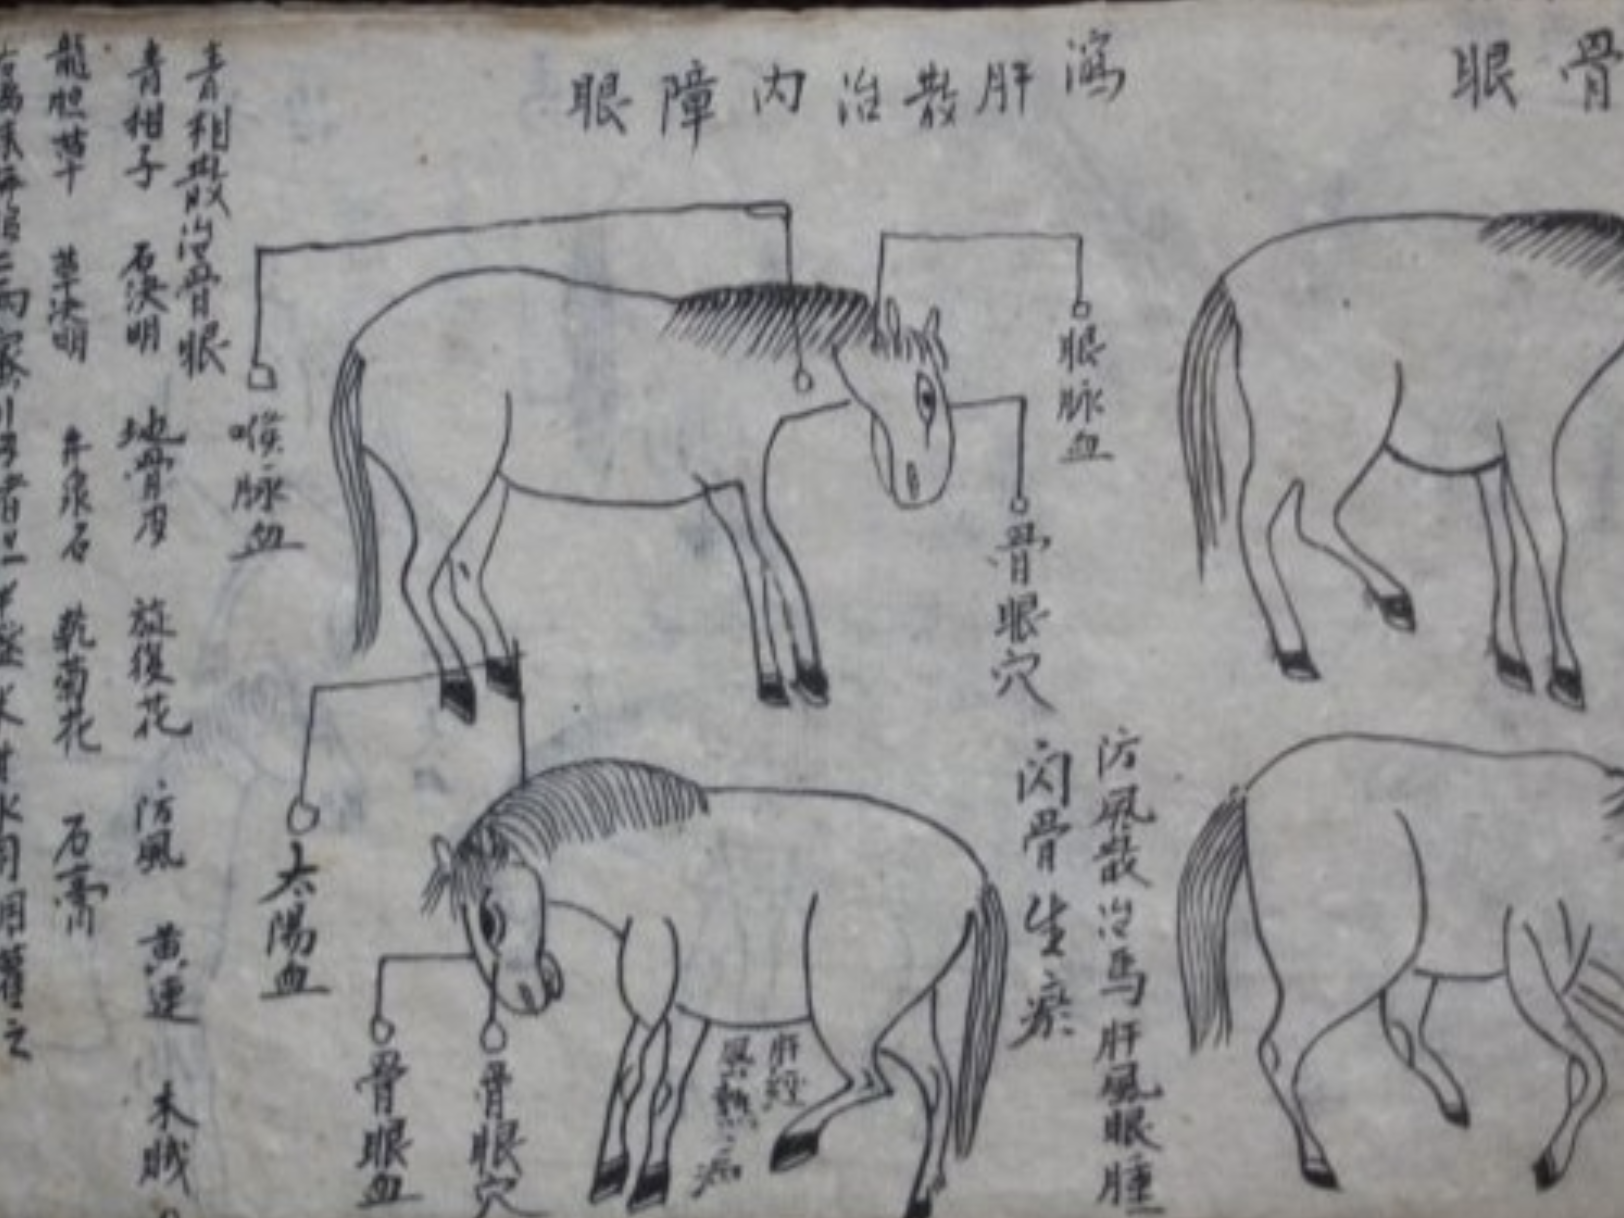 骨眼
瀉肝散治内障眼
眼脉血
骨眼穴
喉脉血
防風散治馬肝風眼腫
閃骨生瘀
肝經
風熱
太陽血
骨眼穴
骨眼血
青相散治骨眼
青相子 石決明 地骨皮 旋復花 防風 黄連 木賊
龍胆草 草決明 井泉石 乾菊花 石膏